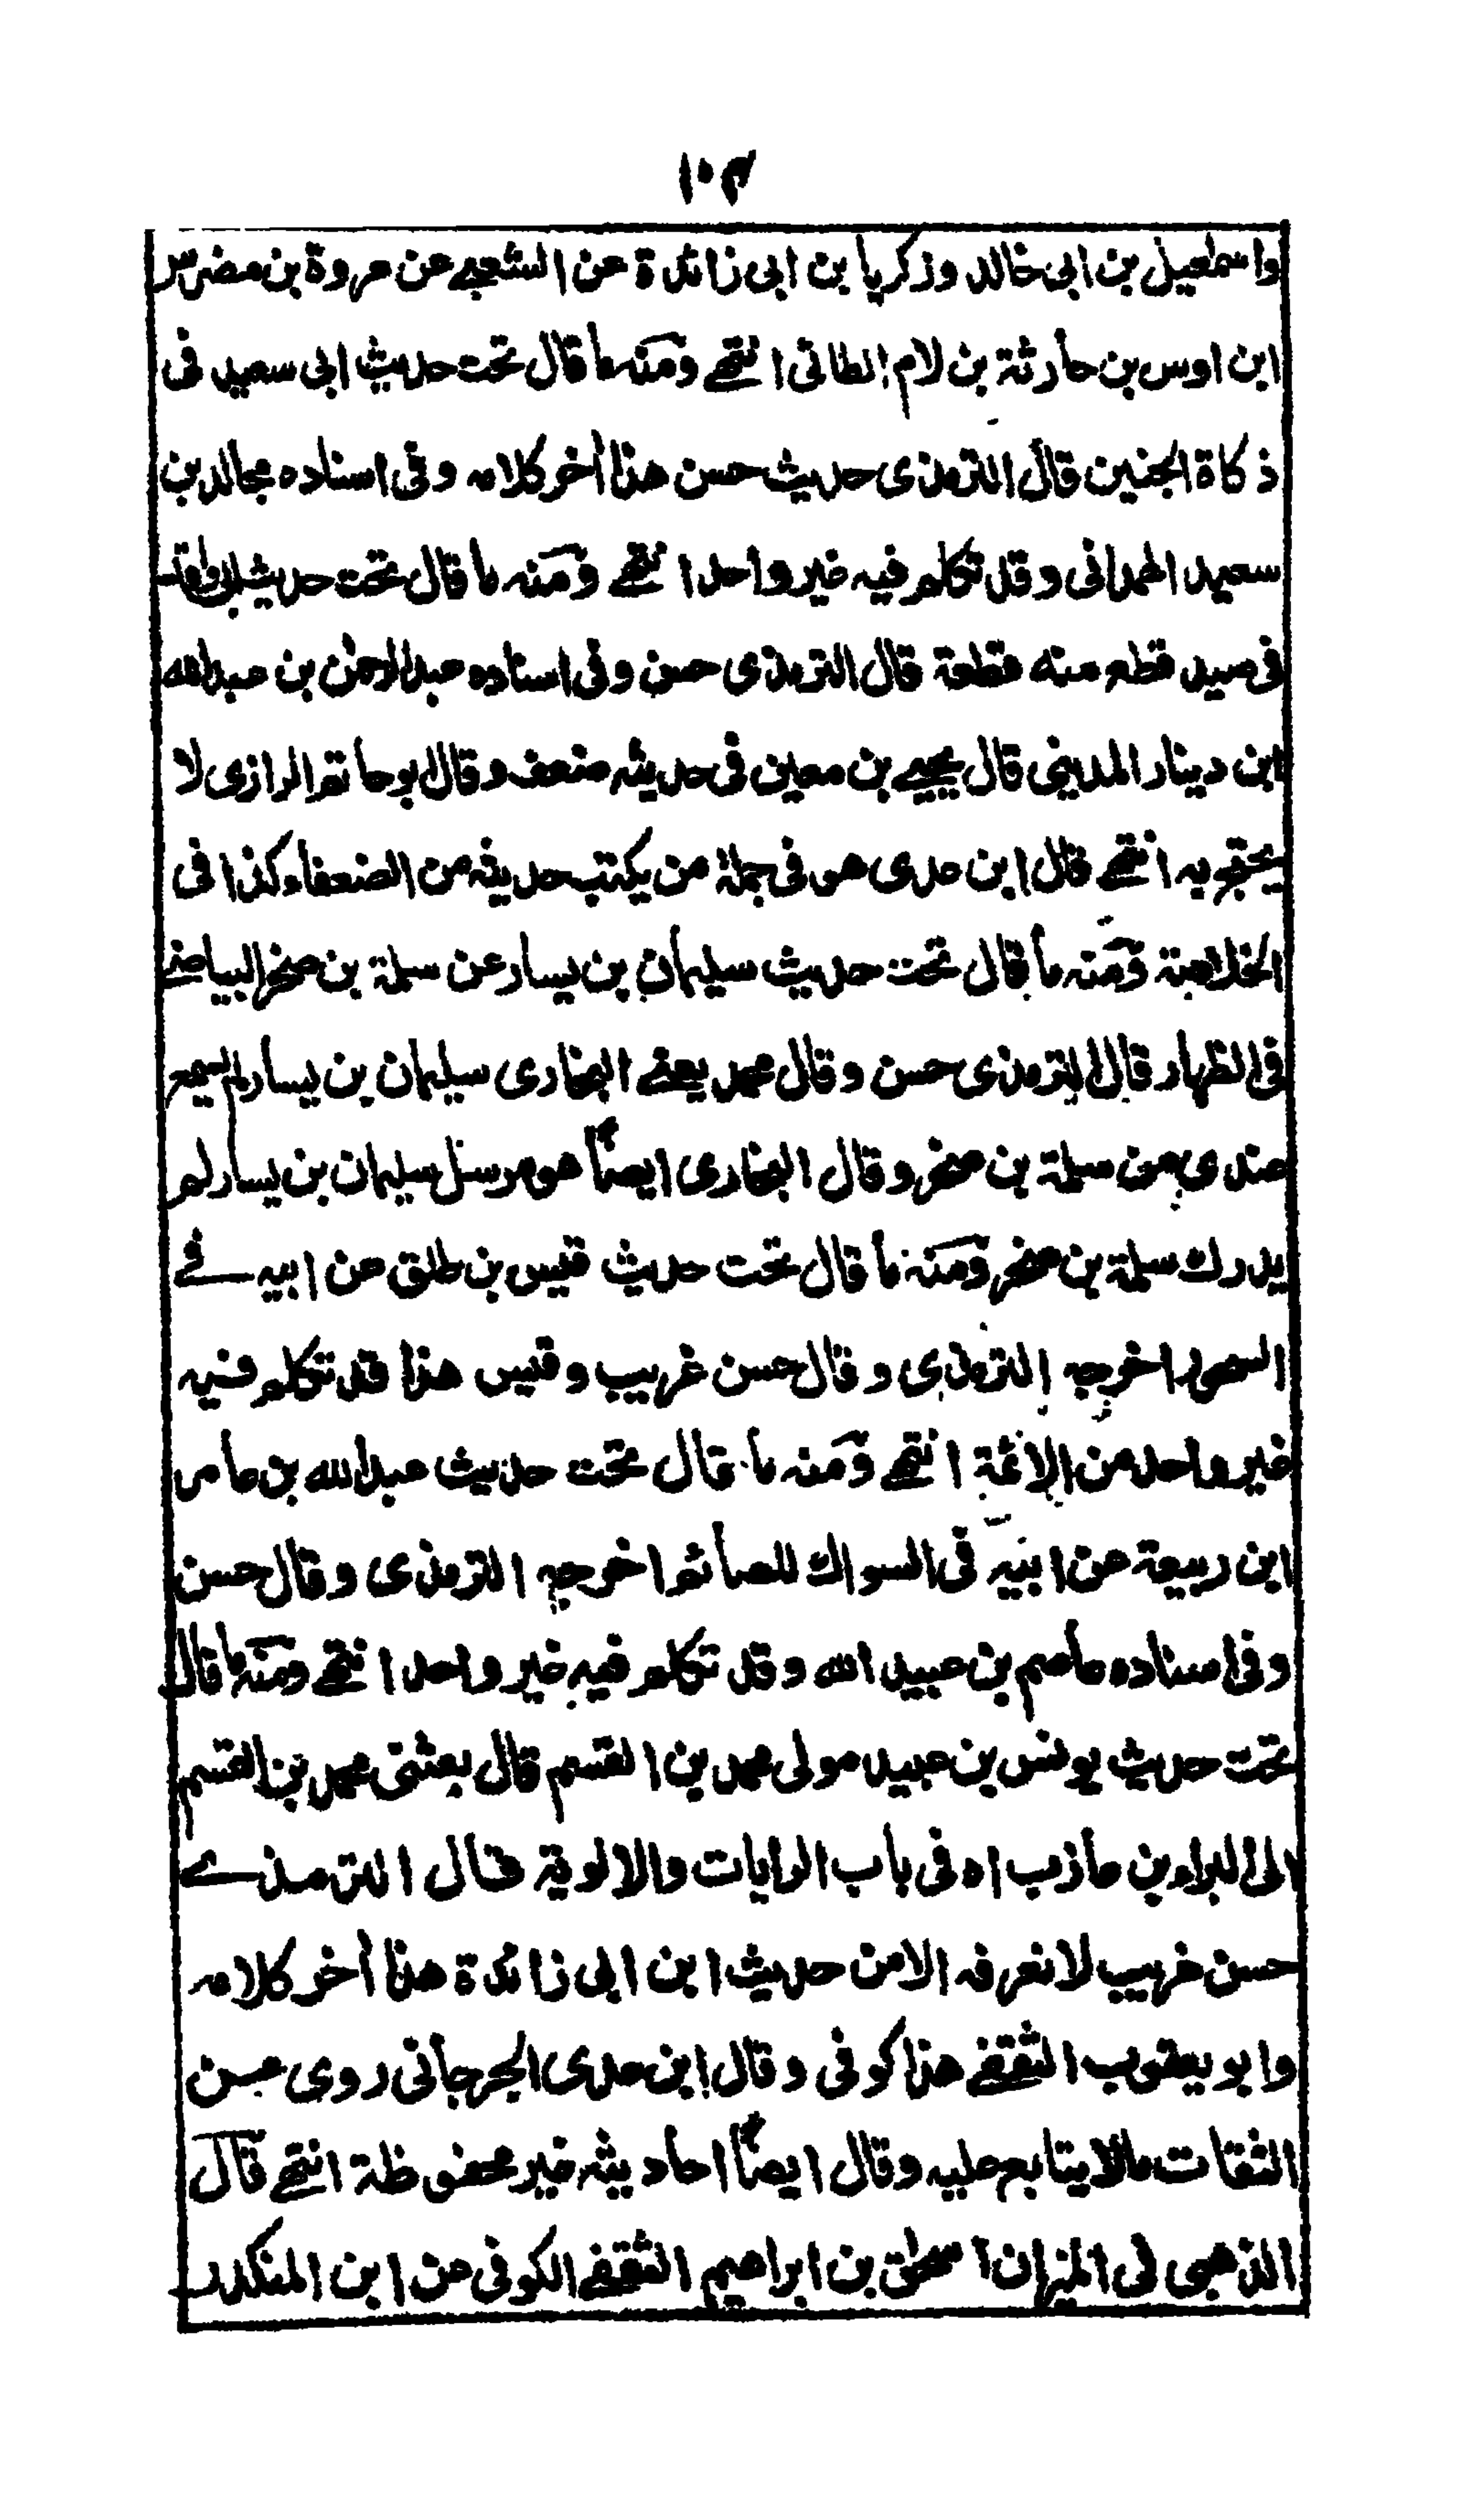 ١٠٣
واسمعيل بن ابى خالد وزكريا بن ابى زائدة عن الشعبے عن عروة بن مضرس
ابن اوس بن حارثة بن لام الطائى انتهے ومنه ما قال تحت حديث ابى سعيد فى
ذكاة الجنين قال الترمذى حديث حسن هذا أخر كلامه وفى اسناده مجالد بن
سعيد الهمدانى وقد تكلم فيه غير واحد انتهے ومنه ما قال تحت حديث ابى واقد
فى صيد قطع منه قطعة قال الترمذى حسن وفى اسناده عبدالرحمن بن عبدالله
ابن دينار المدينى قال يحيے بن معين فى حديثه ضعف وقال ابو حاتم الرازى لا
يحتج به انتهے قال ابن عدى هو فى جملة من يكتب حديثه من الضعفاء كذا فى
الخلاصة ومنه ما قال تحت حديث سليمان بن يسار عن سلمة بن صخر البياضے
فى الظهار قال الترمذى حسن وقال محمد يعنے البخارى سليمان بن يسار لم يسمع
عندى من سلمة بن صخر وقال البخارى ايضاً هو مرسل سليمان بن يسار لم
يدرك سلمة بن صخر ومنه ما قال تحت حديث قيس بن طلق عن ابيه فے
السحور اخرجه الترمذى وقال حسن غريب وقيس هذا قد تكلم فيه
غير واحد من الائمة انتهے ومنه ما قال تحت حديث عبدالله بن عامر
ابن ربيعة عن ابيه فى السواك للصائم اخرجه الترمذى وقال حسن
وفى اسناده عاصم بن عبيد الله وقد تكلم فيه غير واحد انتهے ومنه ما قال
تحت حديث يونس بن عبيد مولى محمد بن القسم قال بعثنى محمد بن القسم
الى البراء بن عازب اه فى باب الرايات والالوية قال الترمذے
حسن غريب لا نعرفه الا من حديث ابن ابى زائدة هذا أخر كلامه
وابو يعقوب الثقفے هذا كوفى وقال ابن عدى الجرجانى روى عن
الثقات مالا يتابع عليه وقال ايضاً احاديثه غير محفوظة انتهے قال
الذهبى فى الميزان اسحق بن ابراهيم الثقفے الكوفى عن ابن المنكدر